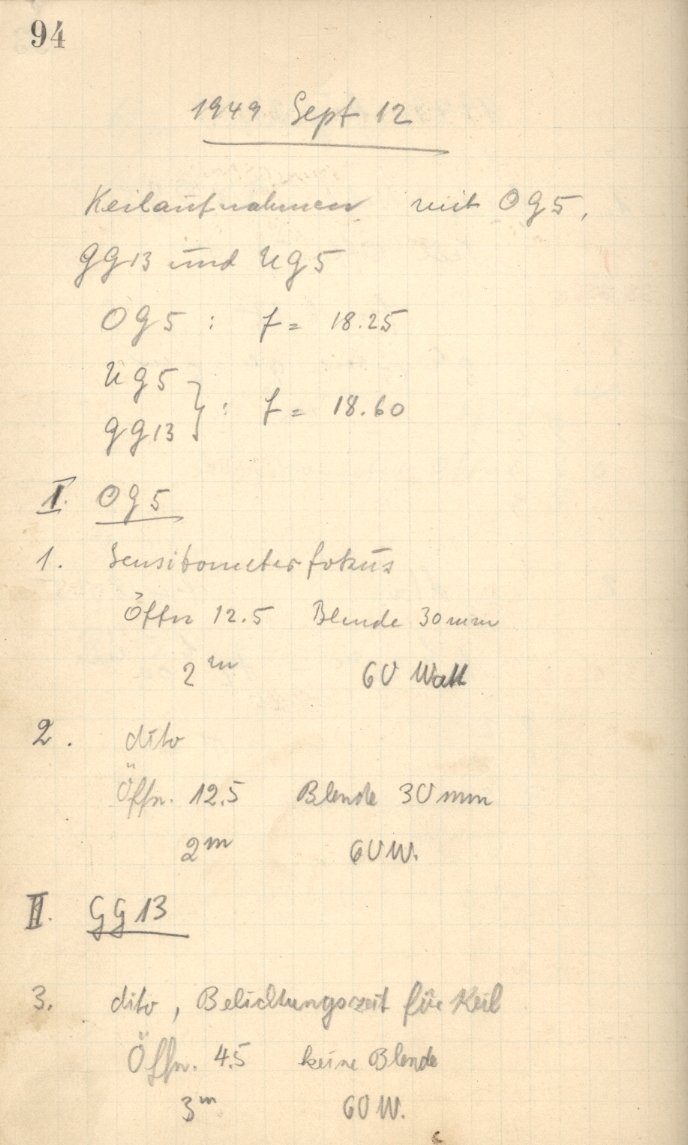 94
1949 Sept 12
Keilaufnahmen mit OG5,
GG13 und UG5
OG5 : f = 18.25
UG5
GG13 } : f = 18.60
I. OG5
1. Sensitometerfokus
Öffn 12.5 Blende 30mm
2m 60 Watt
2. dito
Öffn. 12.5 Blende 30mm
2m 60W.
II. GG13
3. dito, Belichtungszeit für Keil
Öffn. 4.5 keine Blende
3m 60W.